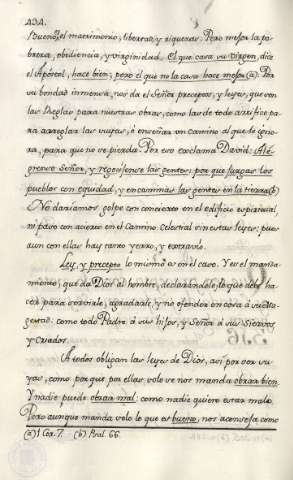 434.
Bueno es el matrimonio, libertad, y riquezas. Pero mejor la po-
breza, obediencia, y virginidad. El que casa su Virgen, dice
el Apostol, hace bien; pero el que no la casa hace mejor (a). Por
su bondad inmensa, nos da el Señor preceptos, y leyes, que son
las Reglas para nuestras obras, como las de todo artifice pa-
ra arreglar las suyas, ò enseñar un camino al que le igno-
ra, para que no se pierda. Por eso exclama David: Ale-
grense Señor, y regocijense las gentes; por que juzgas los
pueblos con equidad, y encaminas las gentes en la tierra (b)
No dariamos golpe con concierto en el edificio espiritual
ni paso con acierto en el Camino Celestial sin estas leyes; pue
aun con ellas hay tanto yerro, y extravío.
Ley, y precepto lo mismo es en el caso. Y es el manda-
miento, que da Dios al hombre, declarandole lo que debe ha-
cer para servirle, agradarle, y no ofender en cosa à su Ma-
gestad: como todo Padre à sus hijos, y Señor à sus Siervos
y Criados.
A todos obligan las leyes de Dios, asi por ser su-
yas, como por que por ellas solo se nos manda obrar bien.
Y nadie puede obrar mal: como nadie quiere estar malo.
Pero aunque manda solo lo que es bueno, nos aconseja como
(a) 1 Cor. 7. (b) Psal. 66.